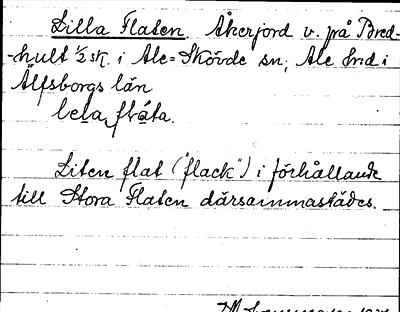 Lilla Flaten. Åkerjord v. på Bred-
-hult ½ sk. i Ale-Skövde sn; Ale hrd i
Älfsborgs län
lela flata.
Liten flat ("flack") i förhållande
till Stora Flaten därsammastädes.